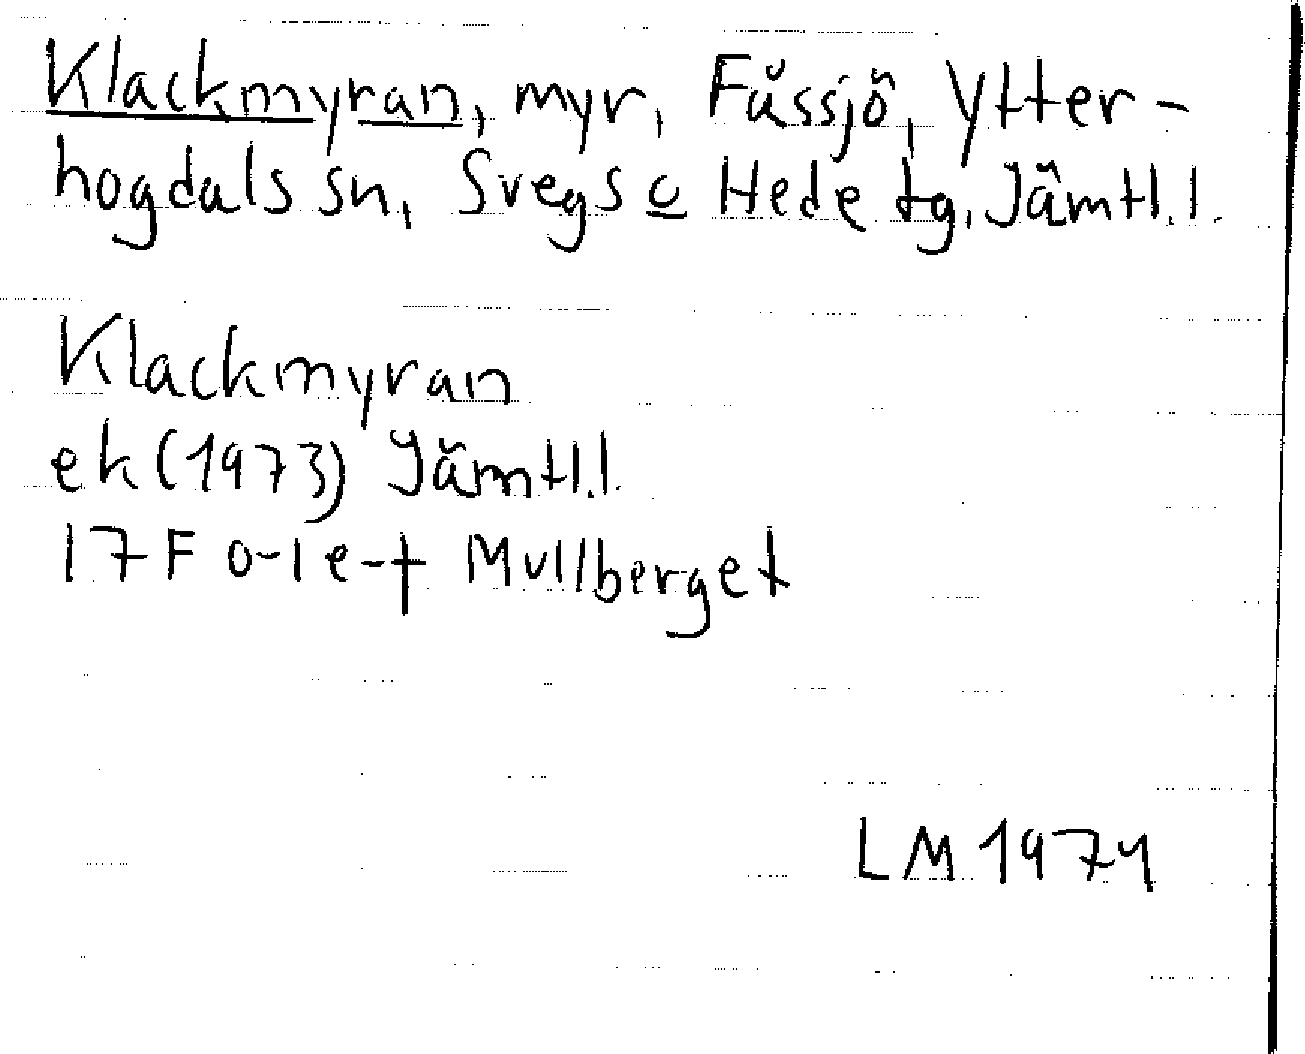 Klackmyran, myr, Fåssjö, Ytter-
hogdals sn, Svegs o Hede tg, Jämtl.l.
Klackmyran
ek (1973) Jämtl.l.
17F 0-1 e-f Mullberget
LM 1974